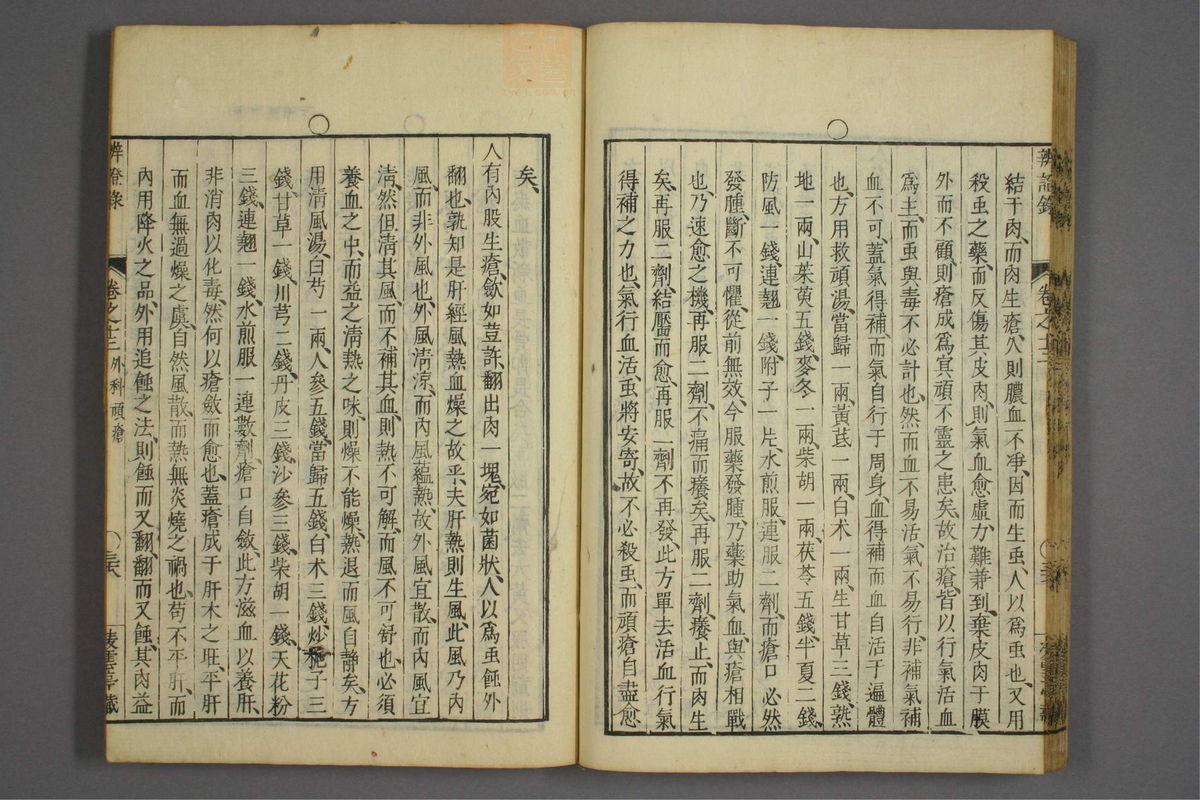 結于肉而肉生瘡穴則膿血不凈因而生虫人以爲虫也又用
殺虫之藥而反傷其皮肉則氣血愈虛力難兼到棄皮肉于膜
外而不顧則瘡成爲冥頑不靈之患矣故治瘡皆以行氣活血
爲主而虫與毒不必計也然而血不易活氣不易行非補氣補
血不可蓋氣得補而氣自行于周身血得補而血自活于遍體
也方用救頑湯當歸一兩黃茋一兩白术一兩生甘草三錢熟
地一兩山茱萸五錢麥冬一兩柴胡一兩茯苓五錢半夏二錢
防風一錢連翹一錢附子一片水煎服連服二劑而瘡口必然
發腫斷不可懼從前無效今服藥發腫乃藥助氣血與瘡相戰
也乃速愈之機再服二劑不痛而癢矣再服二劑癢止而肉生
矣再服二劑結靨而愈再服一劑不再發此方單去活血行氣
得補之力也氣行血活虫將安寄故不必殺虫而頑瘡自盡愈
辨證錄
卷之十三
矣
人有內股生瘡歛如荳許翻出肉一塊宛如菌狀人以爲虫蝕外
翻也孰知是肝經風熱血燥之故乎夫肝熱則生風此風乃內
風而非外風也外風清涼而內風蘊熱故外風宜散而內風宜
清然但清其風而不補其血則熱不可解而風不可舒也必須
養血之中而益之清熱之味則燥不能燥熱退而風自靜矣方
用清風湯白芍一兩人參五錢當歸五錢白术三錢炒梔子三
錢甘草一錢川芎二錢丹皮三錢沙參三錢柴胡一錢天花粉
三錢連翹一錢水煎服一連數劑瘡口自斂此方滋血以養肝
非消肉以化毒然何以瘡斂而愈也蓋瘡成于肝木之旺平肝
而血無過燥之虞自然風散而熱無炎燒之禍也苟不平肝而
內用降火之品外用追蝕之法則蝕而又翻翻而又蝕其肉益
辨證錄
卷之十三 外科頑瘡